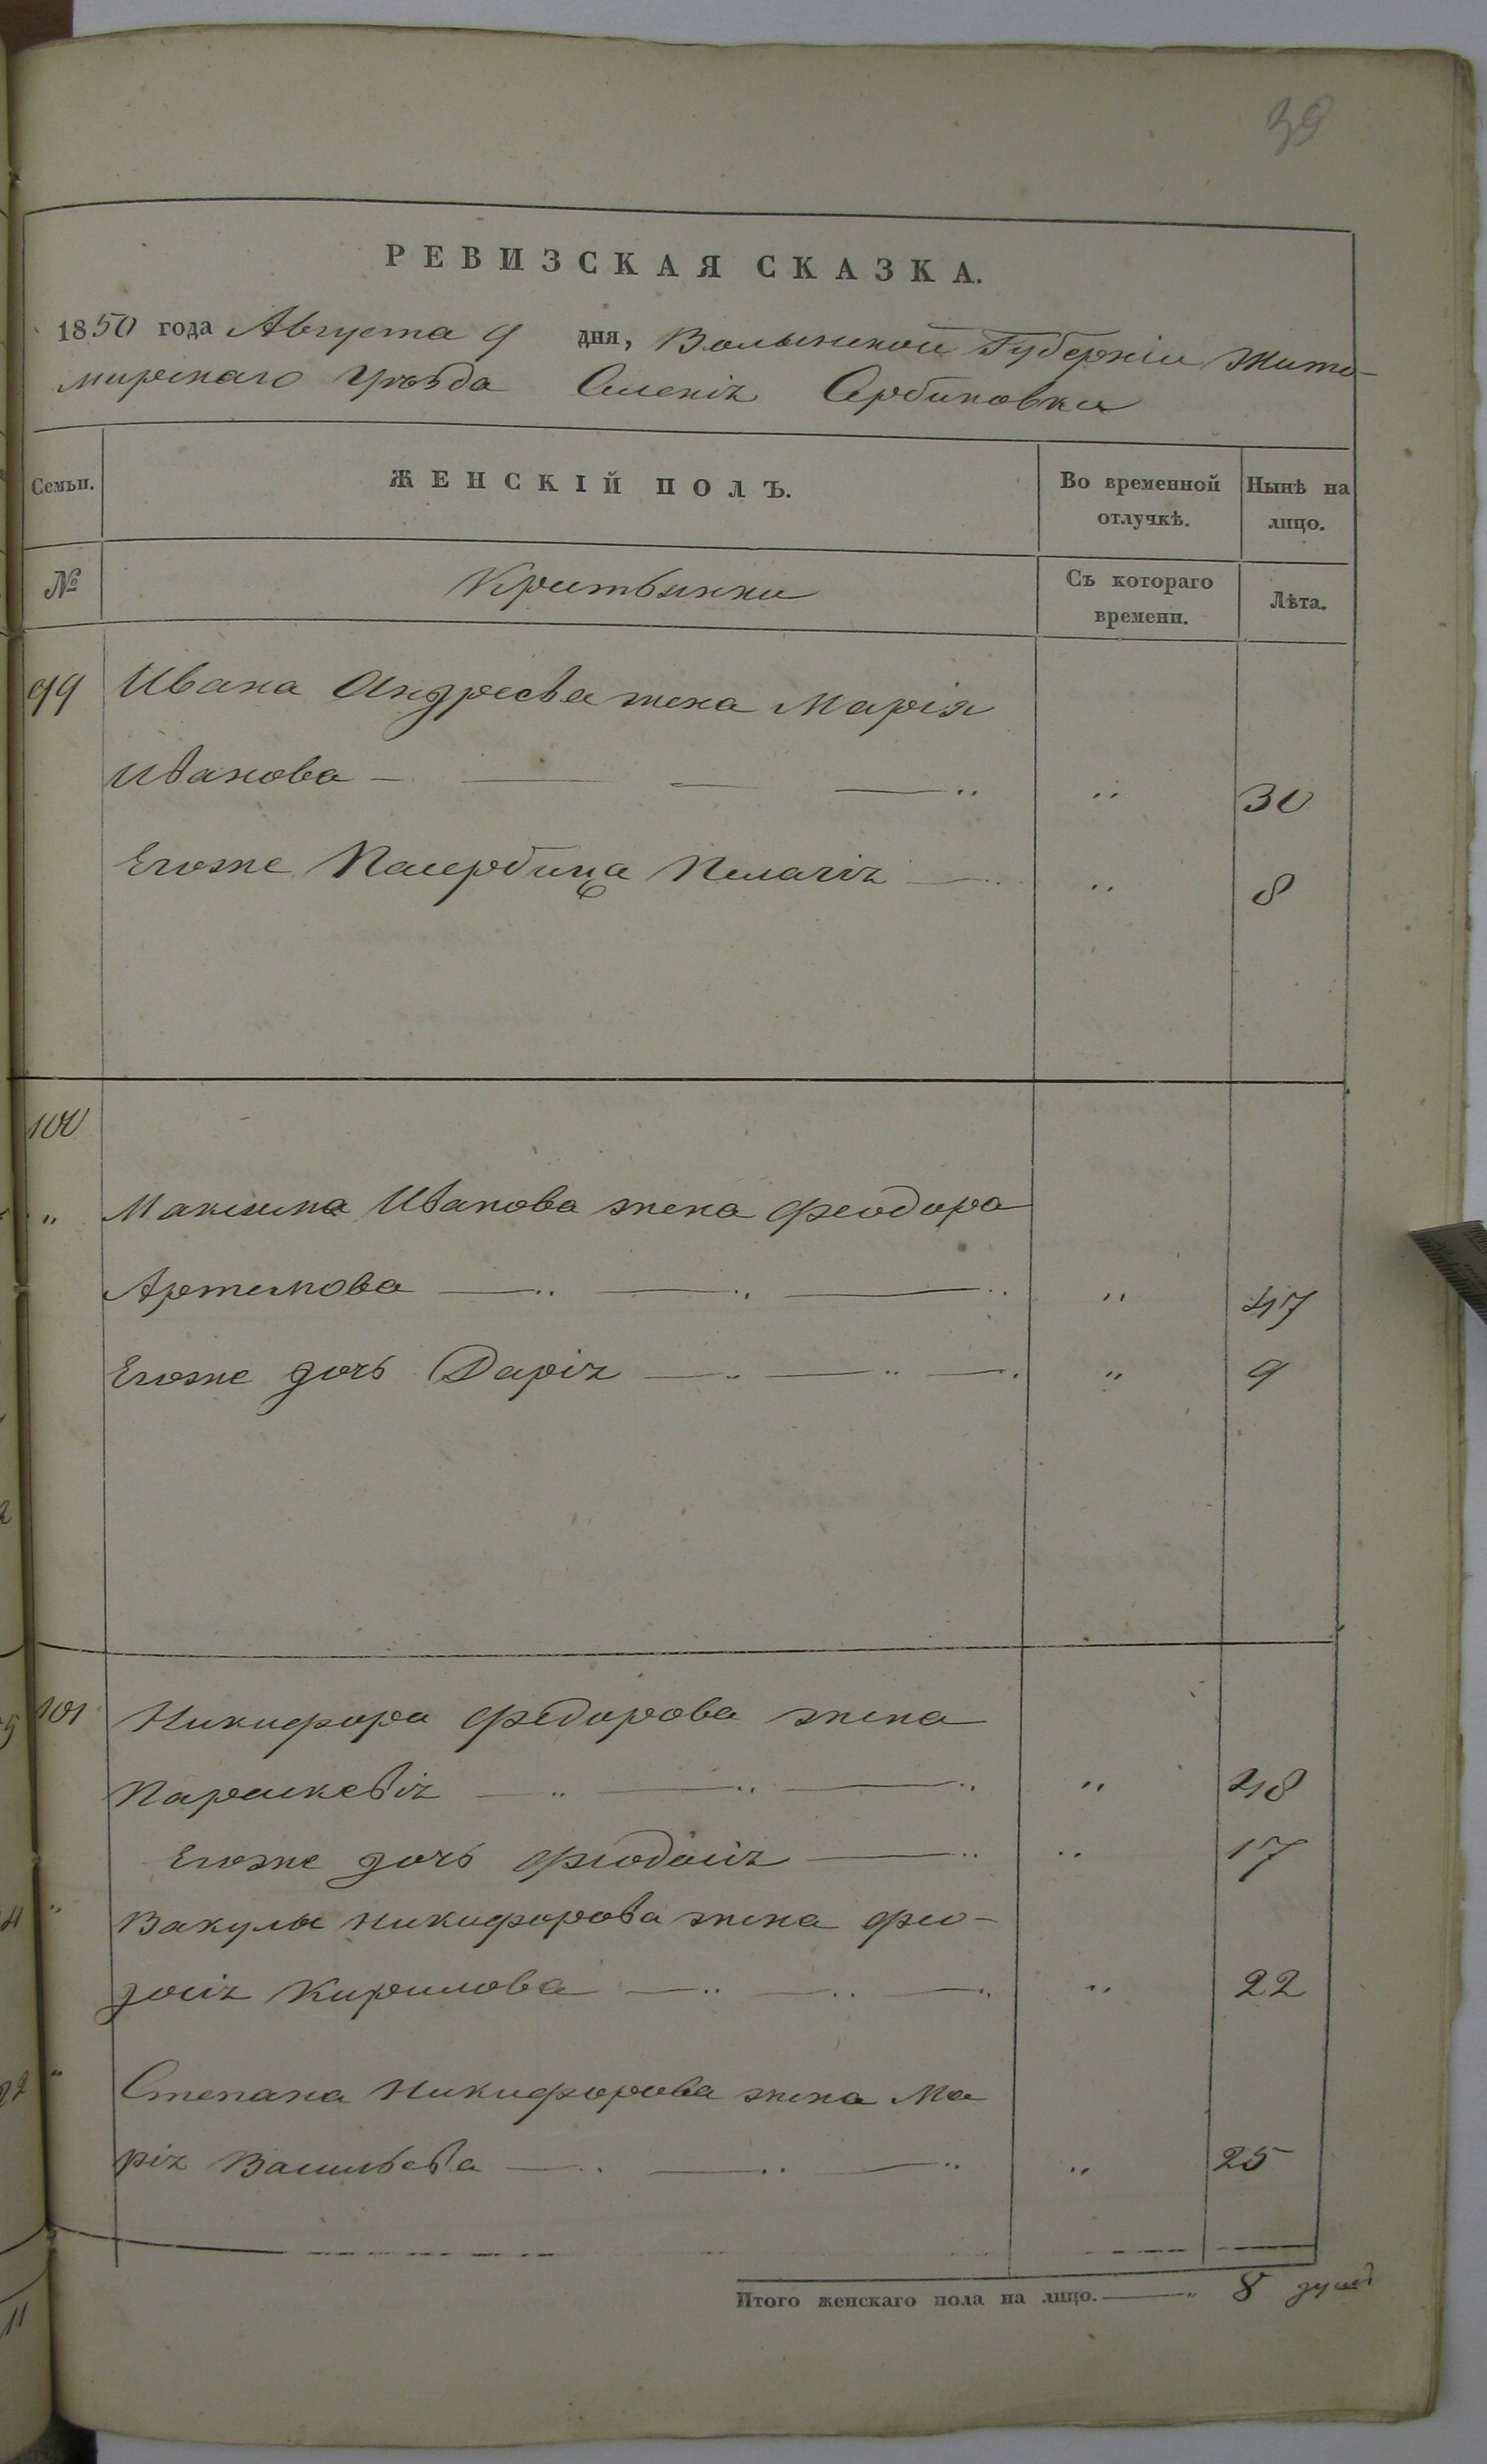 39
РЕВИЗСКАЯ СКАЗКА.
1850 года Августа 9 дня, Волынской Губерніи Жито-
мирскаго Уѣзда Селенія Сербиновки
Семьи.
ЖЕНСКІЙ ПОЛЪ.
Во временной отлучкѣ.
Нынѣ на лицо.
№
Крестьянки
Съ котораго времени.
Лѣта.
99 Ивана Андреева жена Марія
Иванова — — — — „ „ 30
Егоже Пасербица Пелагія — „ „ 8
100
„ Максима Иванова жена Феодора
Артемова — „ — „ — „ „ 47
Егоже дочь Дарія — „ — „ — „ „ 9
101 Никифора Федорова жена
Параскевія — „ — „ — „ „ 48
Егоже дочь Феодосія — „ „ 17
„ Вакулы Никифорова жена Фео-
досія Кирилова — „ — „ — „ „ 22
„ Степана Никифорова жена Ма
рія Васильева — „ — „ — „ „ 25
Итого женскаго пола на лицо. — „ 8 душъ